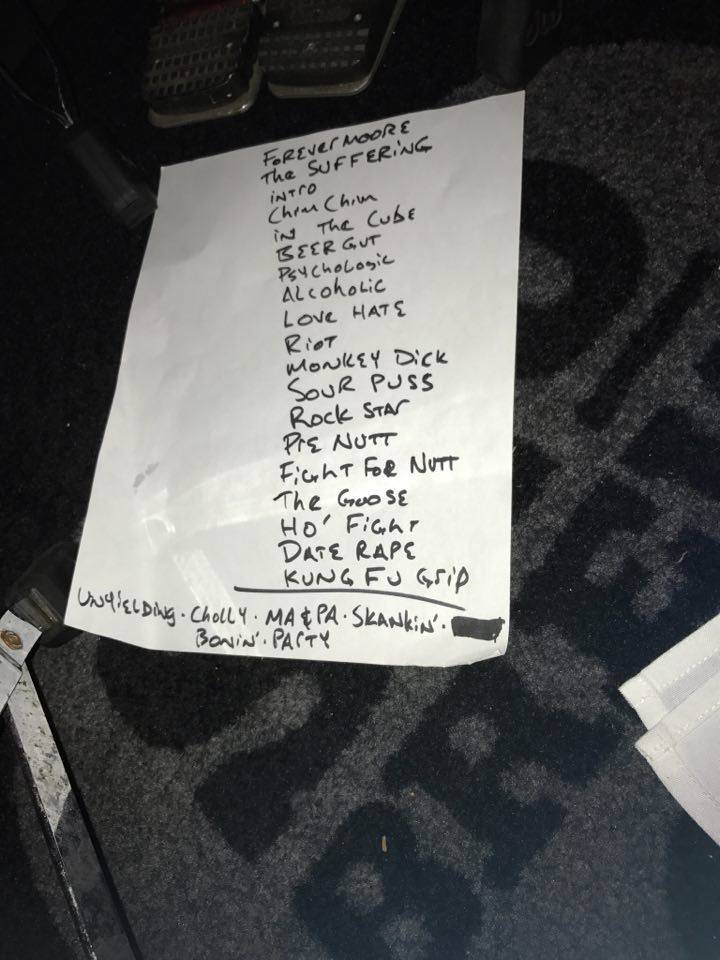 FOREVER MOORE
The SUFFERING
INTRO
Chim Chim
iN The CuBE
BEER GUT
PSYchologic
ALcoholic
LOVE HATE
RioT
MONKEY DicK
SOUR PUSS
ROCK STAR
PRE NUTT
FighT FOR NUTT
The GOOSE
HO' FighT
DATE RAPE
KUNG FU Grip
UNYiELDiNg · ChollY · MA & PA · SKANKiN' ·
BONiN' · PARTY